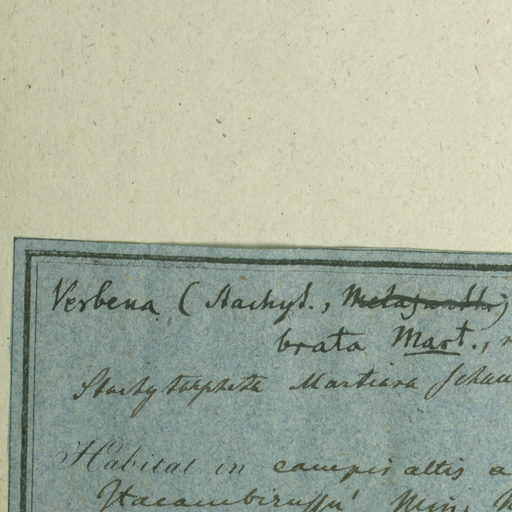 Verbena (Stachyt.,
brata Mart.,
Stachytarpheta Martiana Schau
Habitat in campis altis a
Itacambirussú Min: